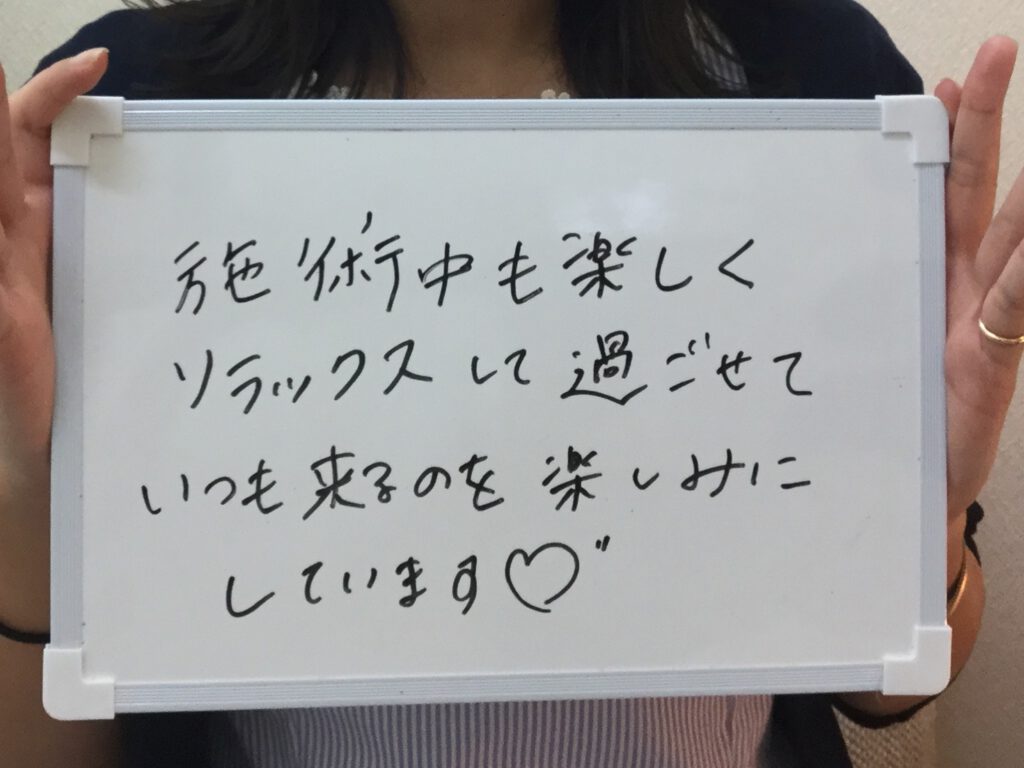 施術中も楽しく
リラックスして過ごせて
いつも来るのを楽しみに
しています♡"